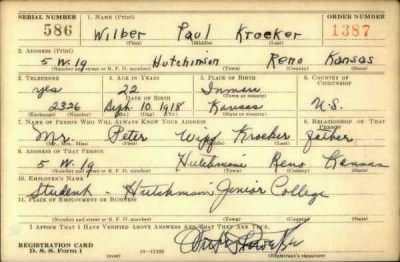 SERIAL NUMBER 1. NAME (Print) ORDER NUMBER
586 Wilber Paul Kroeker 1387
(First) (Middle) (Last)
2. ADDRESS (Print)
5 W. 19 Hutchinson Reno Kansas
(Number and street or R. F. D. number) (Town) (County) (State)
3. TELEPHONE 4. AGE IN YEARS 5. PLACE OF BIRTH 6. COUNTRY OF CITIZENSHIP
yes 22 Inman
DATE OF BIRTH (Town or county)
2326 Sept. 10, 1918 Kansas U.S.
7. NAME OF PERSON WHO WILL ALWAYS KNOW YOUR ADDRESS 8. RELATIONSHIP OF THAT PERSON
Mr. Peter Kroeker father
(Mr., Mrs., Miss) (First) (Middle) (Last)
9. ADDRESS OF THAT PERSON
5 W. 19 Hutchinson Reno Kansas
(Number and street or R. F. D. number) (Town) (County) (State)
10. EMPLOYER'S NAME
Student - Hutchinson Junior College
11. PLACE OF EMPLOYMENT OR BUSINESS
(Number and street or R. F. D. number) (Town) (County) (State)
I AFFIRM THAT I HAVE VERIFIED ABOVE ANSWERS AND THAT THEY ARE TRUE.
REGISTRATION CARD
D. S. S. Form 1 (Registrant's signature)